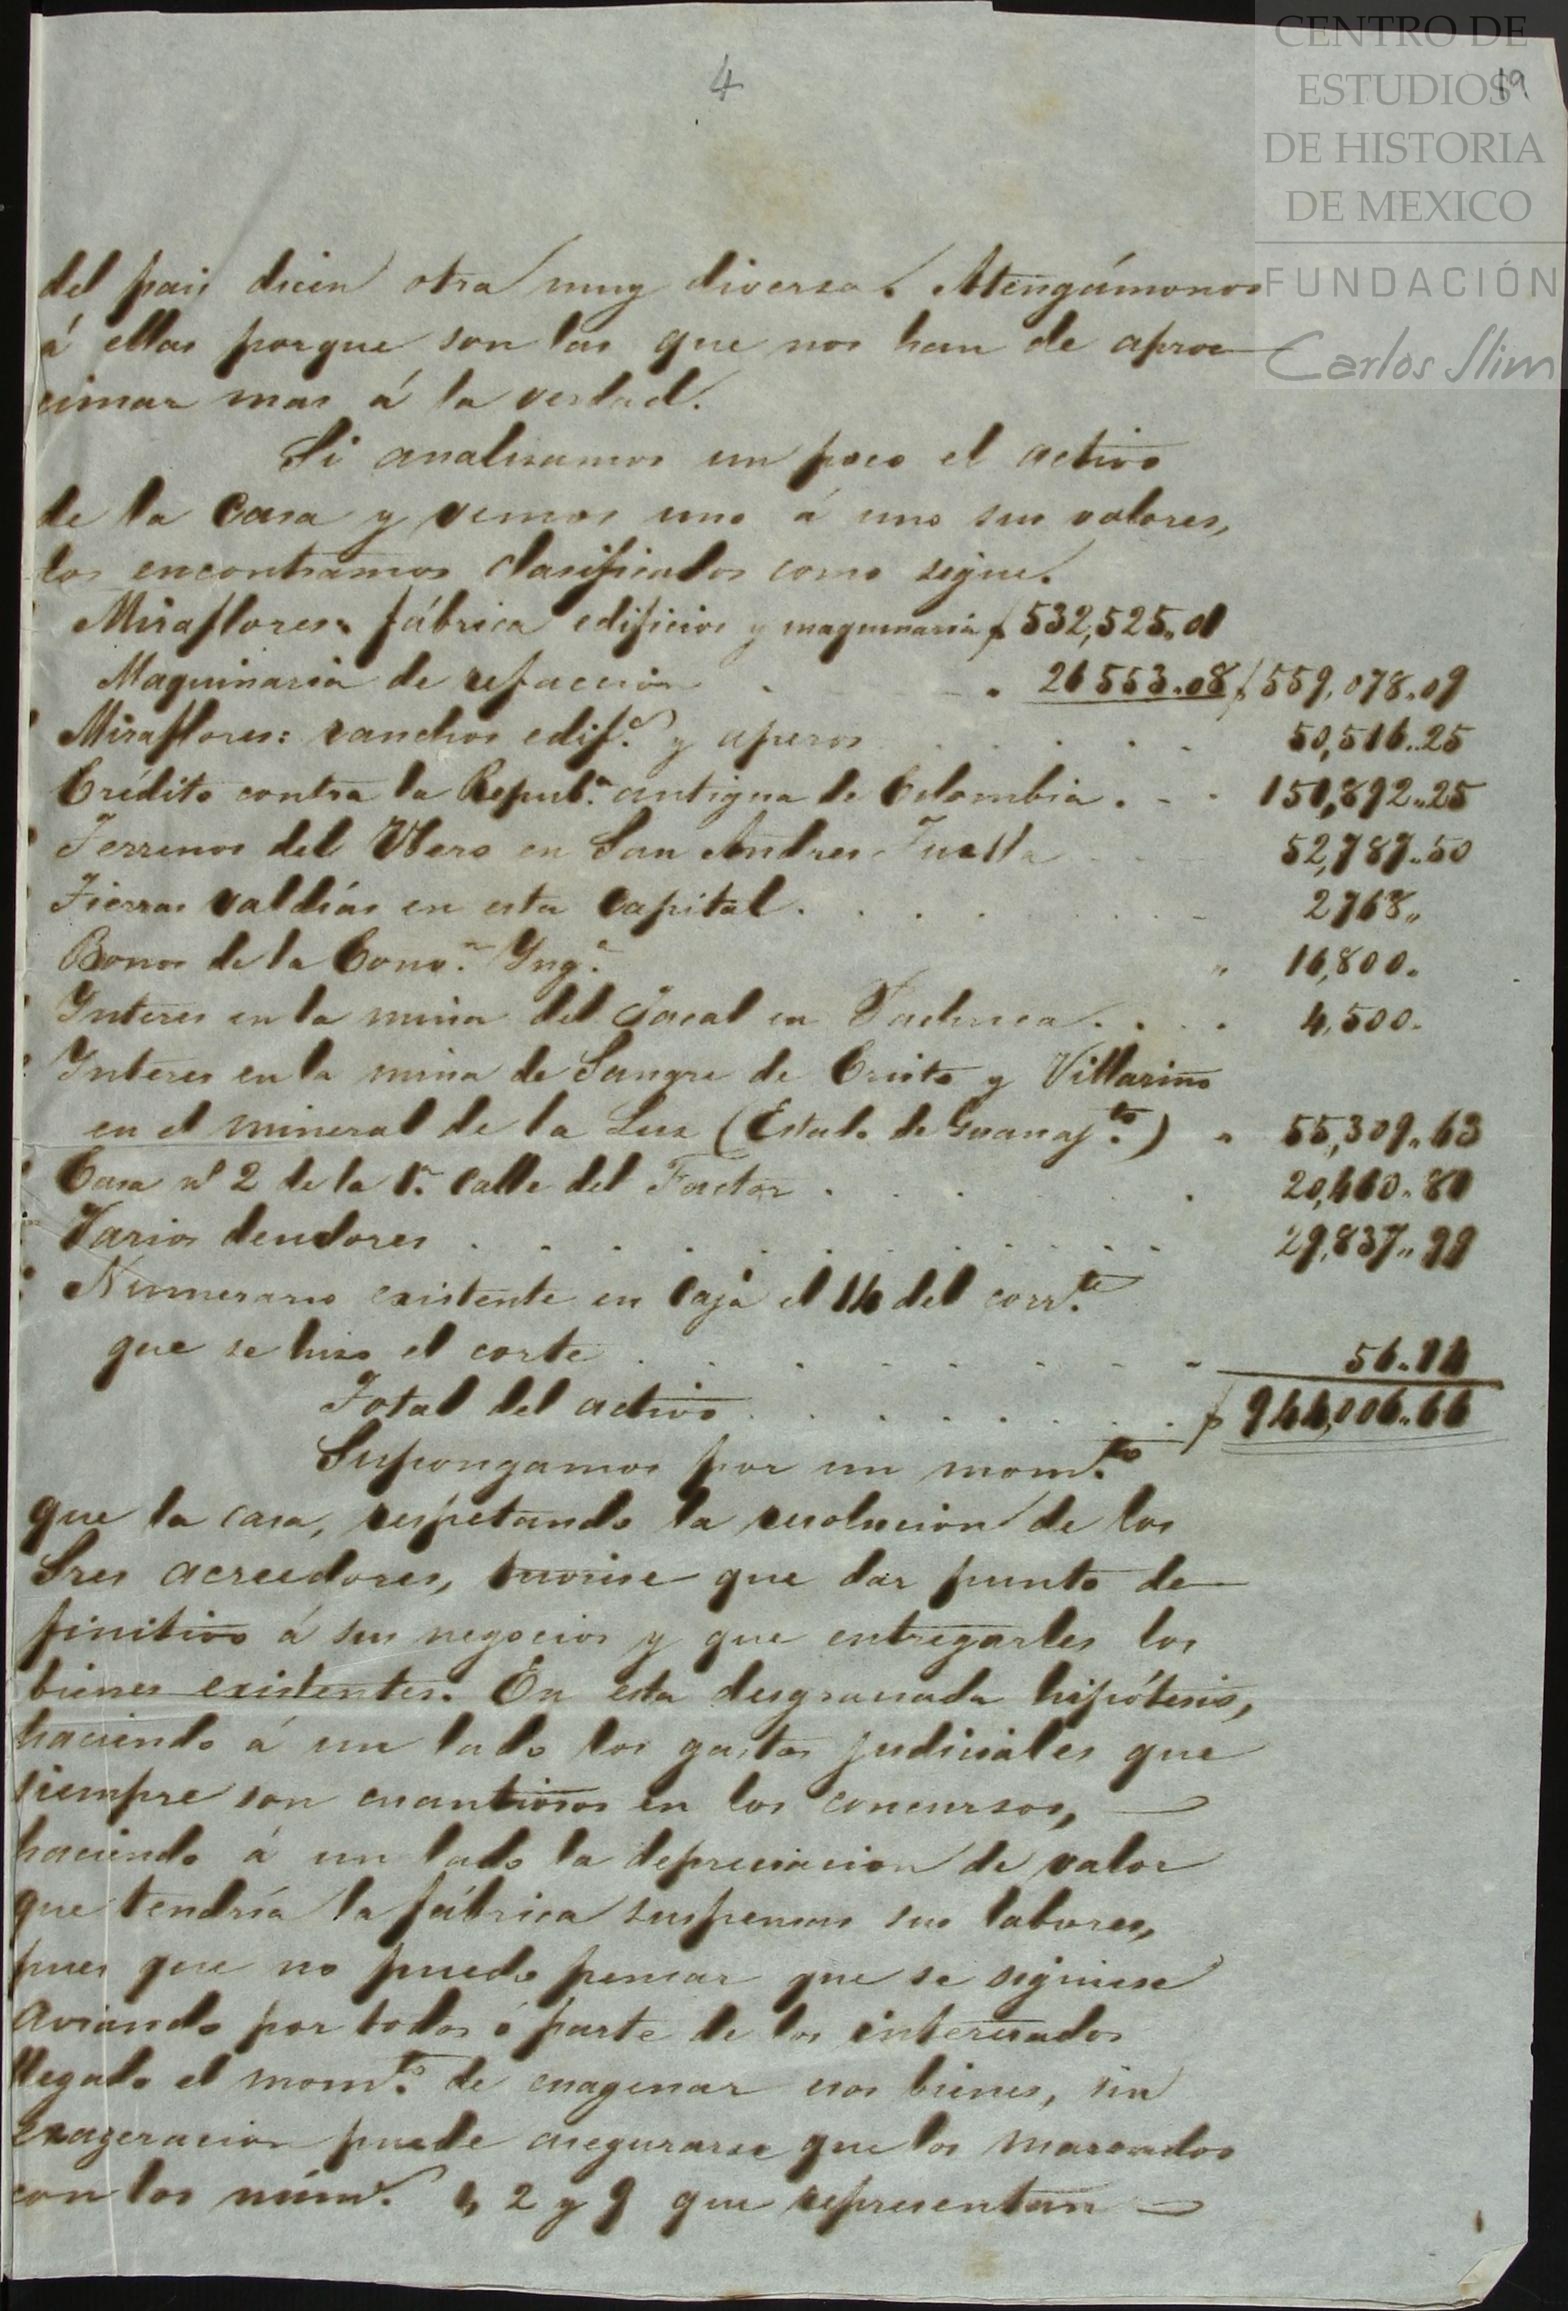 4
19
CENTRO DE
ESTUDIOS
DE HISTORIA
DE MEXICO
FUNDACIÓN
Carlos Slim
del pais dicen otra muy diversa. Atengámonos
á ellas porque son las que nos han de aproc
simar mas á la verdad.
Si analisamos un poco el activo
de la Casa y vemos uno á uno sus valores,
los encontramos clasificados como sigue.
Miraflores: fábrica edificios y maquinaria $ 532,525.01
Maquinaria de refaccion . . 26553.08 $ 559,078.09
Miraflores: ranchos edif.s y aperos . . . . . 50,516..25
Crédito contra la Repub.a antigua de Colombia . - - 151,892..25
Terrenos del Uvero en San Andres Tuxtla . . 52,787..50
Tierras valdías en esta Capital . . . . . . 2768,,
Bonos de la Conv.n Yng.a " 16,800.
Ynteres en la mina del Jacal en Pachuca . . . . 4,500.
Ynteres en la mina de Sangre de Cristo y Villarino
en el mineral de la Luz (Estado de Guanaj.to) " 55,309..63
Casa nº 2 de la 1.a Calle del Factor . . . . 20,460.80
Varios deudores . . . . . . . . . . 29,837..99
Numerario existente en Caja el 14 del corr.te
que se hizo el corte . . . . . . . . 56.14
Total del activo . . . . . . . $ 944,006..66
Supongamos por un mom.to
que la casa, respetando la resolucion de los
Sres acreedores, tuviese que dar punto de
finitivo á sus negocios y que entregarles los
bienes existentes. En esta desgraciada hipótesis,
haciendo á un lado los gastos judiciales que
siempre son cuantiosos en los concursos,
haciendo á un lado la depreciacion de valor
que tendría la fábrica suspensas sus labores,
pues que no puedo pensar que se siguiese
aviando por todos ó parte de los interesados
llegado el mom.to de enagenar esos bienes, sin
exageracion puede asegurarse que los marcados
con los núm.s 1, 2 y 9 que representan